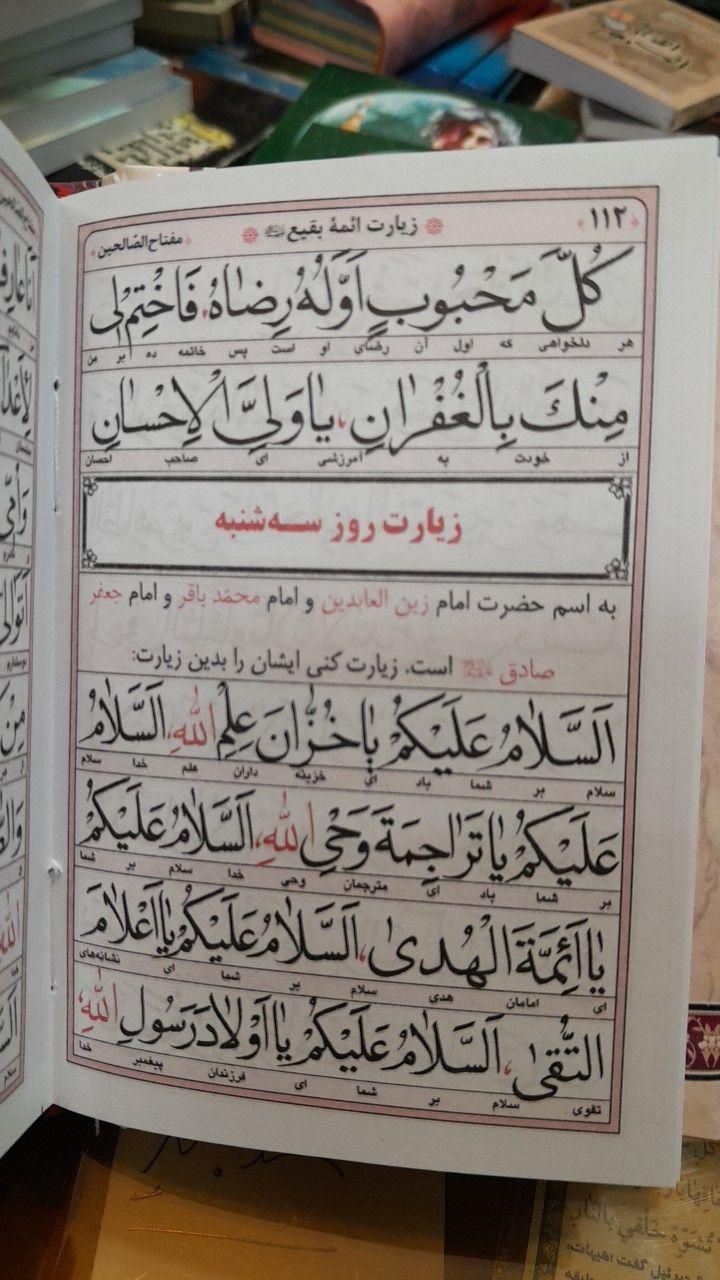 ﴿۱۱۲﴾ زیارت ائمهٔ بقیع ﴿مفتاح‌الصّالحین﴾
كُلَّ مَحْبُوبٍ اَوَّلُهُ رِضاهُ، فَاخْتِمْ لی
هر دلخواهی که اول آن رضای او است پس خاتمه ده بر من
مِنْكَ بِالْغُفْرانِ، یا وَلِیَّ الْاِحْسانِ
از خودت به آمرزشی ای صاحب احسان
زیارت روز سه‌شنبه
به اسم حضرت امام زین العابدین و امام محمّد باقر و امام جعفر
صادق است. زیارت کنی ایشان را بدین زیارت:
اَلسَّلامُ عَلَیْكُمْ یا خُزّانَ عِلْمِ اللهِ، اَلسَّلامُ
سلام بر شما باد ای خزینه داران علم خدا سلام
عَلَیْكُمْ یا تَراجِمَةَ وَحْیِ اللهِ، اَلسَّلامُ عَلَیْكُمْ
بر شما باد ای مترجمان وحی خدا سلام بر شما
یا اَئِمَّةَ الْهُدیٰ، اَلسَّلامُ عَلَیْكُمْ یا اَعْلامَ
ای امامان هدی سلام بر شما ای نشانه‌های
التُّقیٰ، اَلسَّلامُ عَلَیْكُمْ یا اَوْلادَ رَسُولِ اللهِ،
تقوی سلام بر شما ای فرزندان پیغمبر خدا